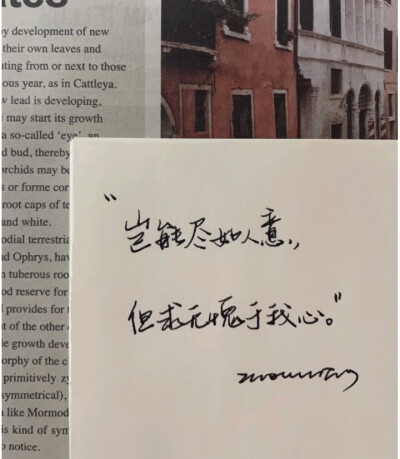 by development of new
their own leaves and
ating from or next to those
ous year, as in Cattleya.
w lead is developing,
may start its growth
a so-called 'eye', an
d bud, thereby
orchids may be
s or forme cor
root caps of te
and white.
odial terrestria
nd Ophrys, hav
n tuberous roo
od reserve for
l provides for
t of the other
le growth deve
orphy of the c
primitively zy
symmetrical),
like Mormod
is kind of sym
notice.
“岂能尽如人意,
但求无愧于我心。”